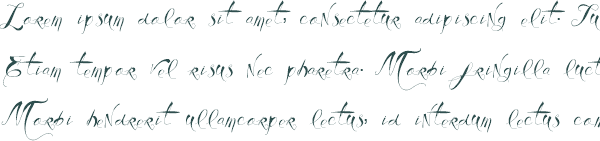 Lorem ipsum dolor sit amet, consectetur adipiscing elit. Su
Etiam tempor vel risus nec pharetra. Morbi fringilla luct
Morbi hendrerit ullamcorper lectus, id interdum lectus con